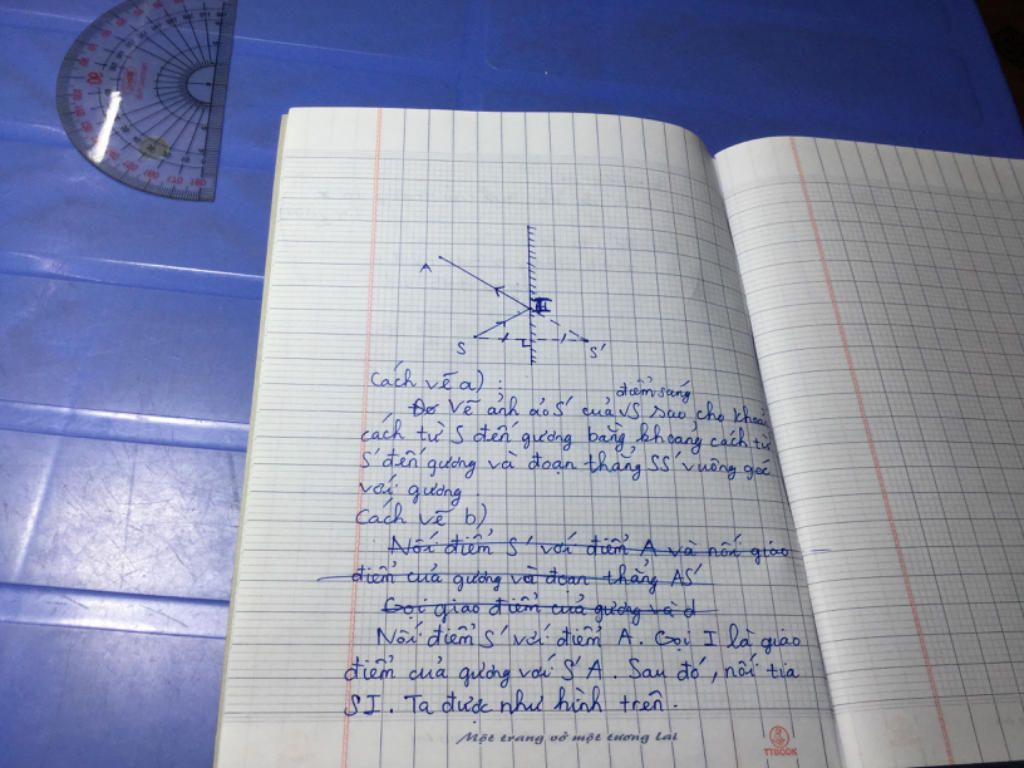 A
I
S
S'
Cách vẽ a) :
điểm sáng
Vẽ ảnh ảo S' của S sao cho khoản
cách từ S đến gương bằng khoảng cách từ
S' đến gương và đoạn thẳng SS' vuông góc
với gương.
Cách vẽ b)
Nối điểm S' với điểm A và nối giao
điểm của gương và đoạn thẳng AS'
Gọi giao điểm của gương và đ
Nối điểm S' với điểm A. Gọi I là giao
điểm của gương với S'A. Sau đó, nối tia
SI. Ta được như hình trên.
Một trang vở một tương lai
TTBOOK